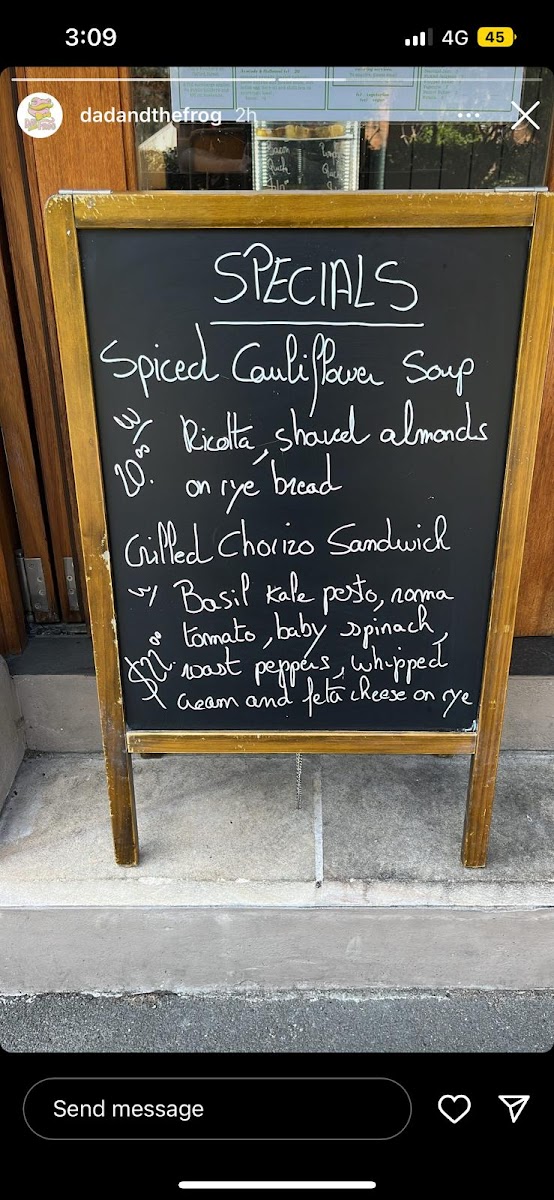 3:09
4G
45
dadandthefrog 2h
SPECIALS
Spiced Cauliflower Soup
w/ Ricotta, shaved almonds
20.00
on rye bread
Grilled Chorizo Sandwich
w/ Basil kale pesto, roma
tomato, baby spinach,
$22.00
roast peppers, whipped
cream and feta cheese on rye
Send message